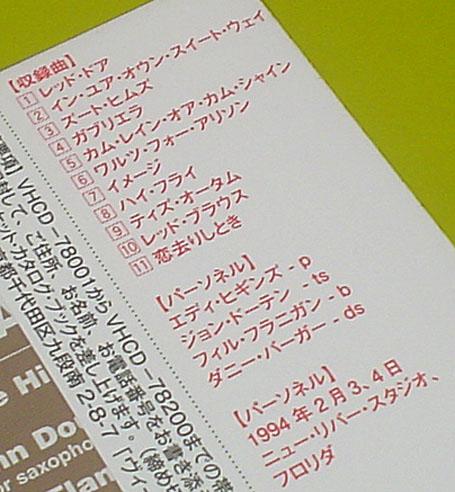 【収録曲】
1 レッド・ドア
2 イン・ユア・オウン・スイート・ウェイ
3 ズート・ヒムズ
4 ガブリエラ
5 カム・レイン・オア・カム・シャイン
6 ワルツ・フォー・アリソン
7 イメージ
8 ハイ・フライ
9 ティズ・オータム
10 レッド・ブラウス
11 恋去りしとき
【パーソネル】
エディ・ヒギンズ - p
ジョン・ドーテン - ts
フィル・フラニガン - b
ダニー・バーガー - ds
【パーソネル】
1994年2月3、4日
ニュー・リバー・スタジオ、
フロリダ
要項】VHCD-78001からVHCD-78200までの帯
封して、ご住所、お名前、お電話番号をお書き添
ケット・カタログ・ブックを差し上げます。（締め
都千代田区九段南2-8-7「ヴィー
e Hi
nn Do
or saxopho
Flan